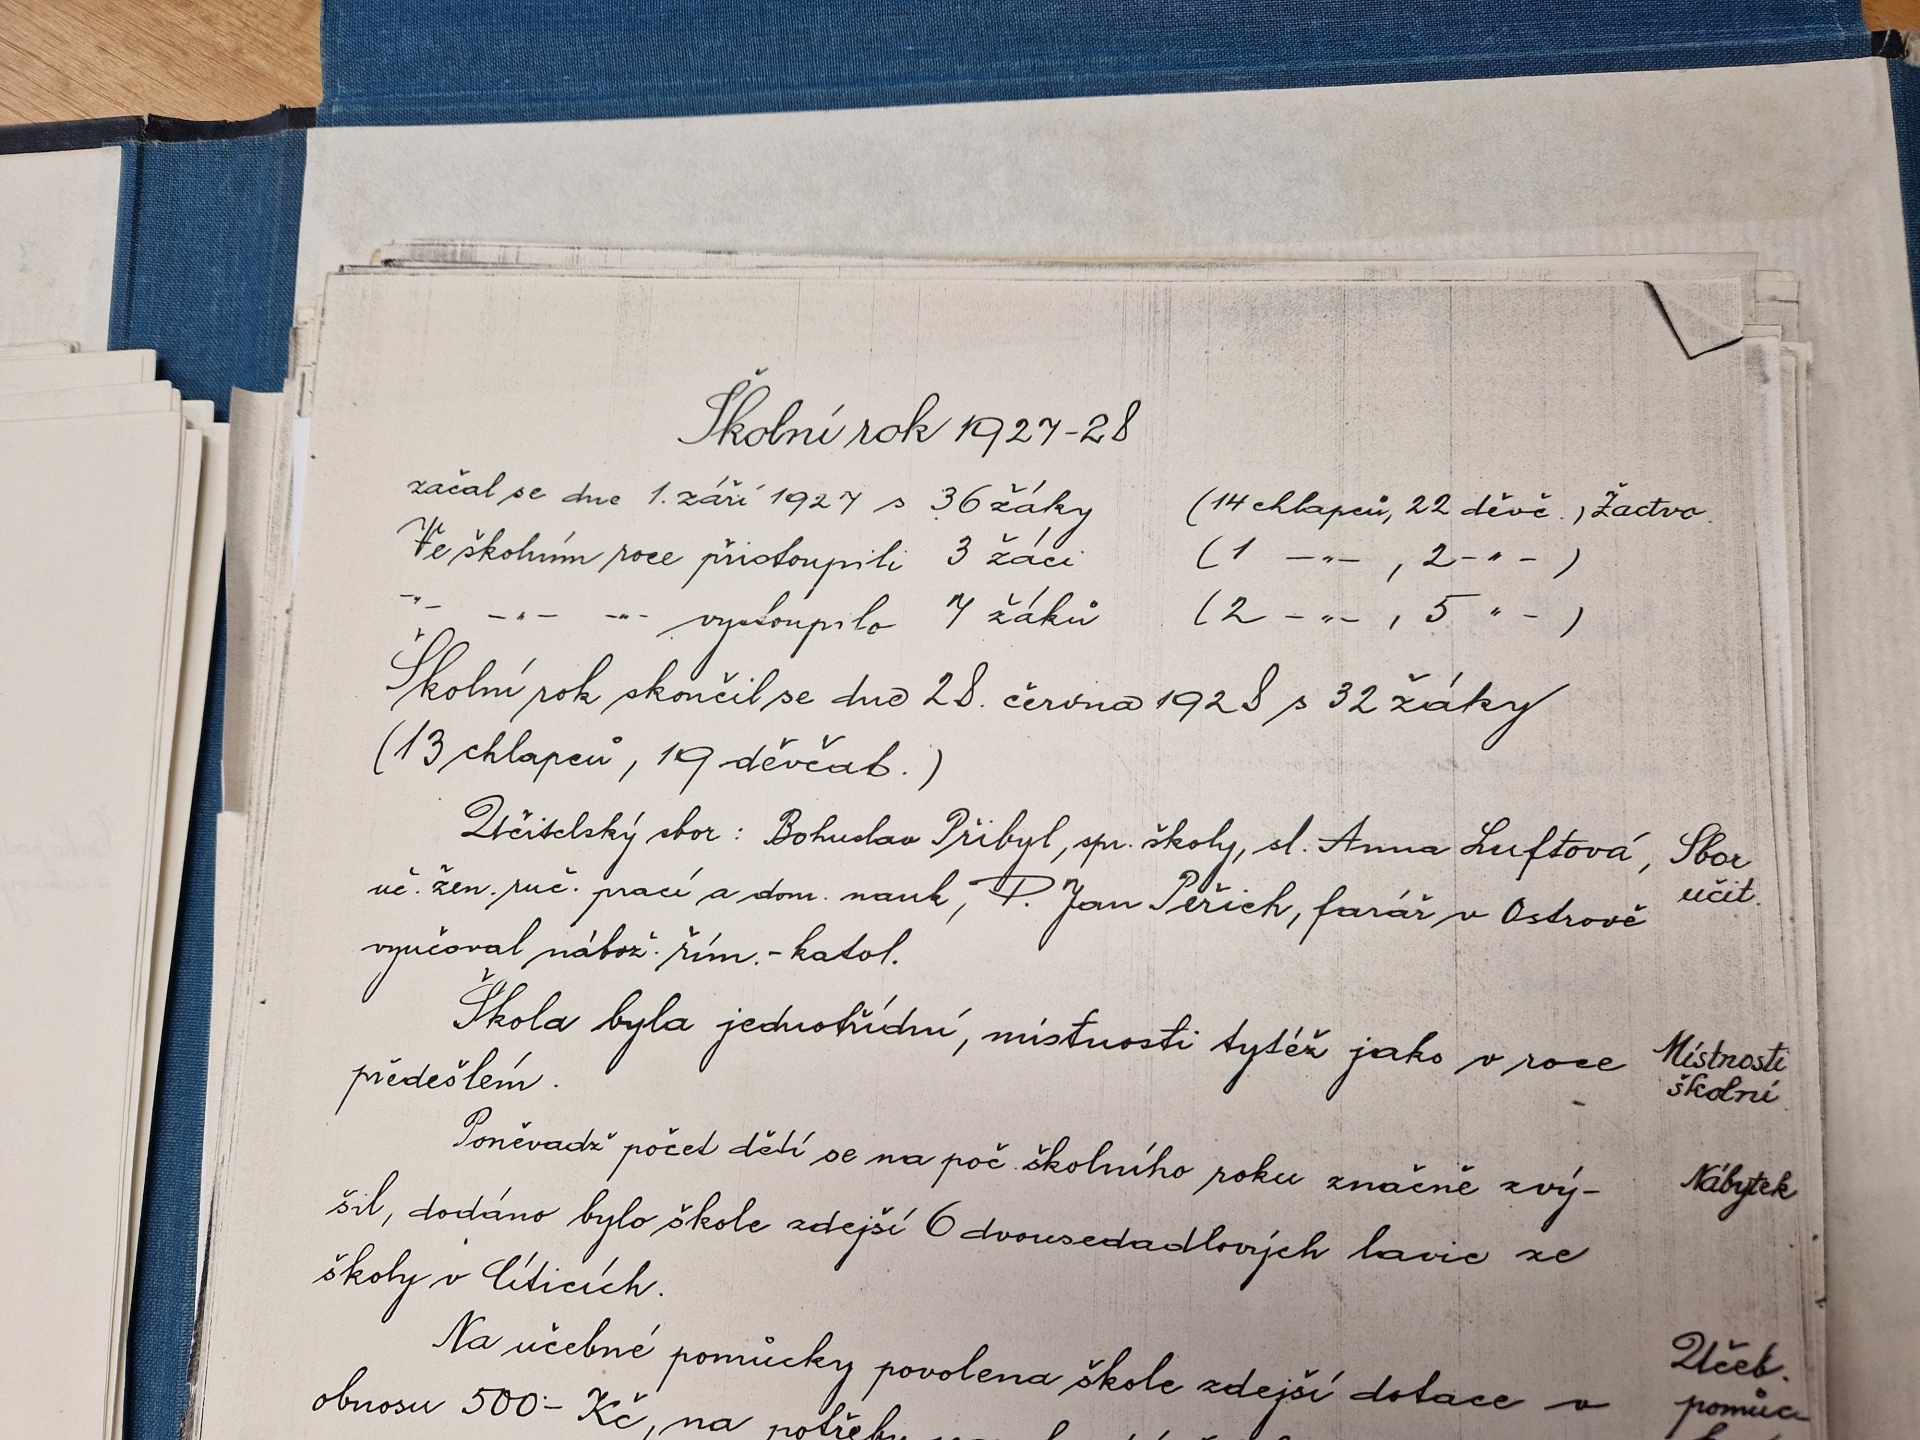 Školní rok 1927-28
začal se dne 1. září 1927 s 36 žáky (14 chlapců, 22 děvč.) Žactvo.
Ve školním roce přistoupili 3 žáci (1 -"-, 2 -"-)
-"- -"- -"- vystoupilo 7 žáků (2 -"-, 5 "-)
Školní rok skončil se dne 28. června 1928 s 32 žáky
(13 chlapců, 19 děvčat.)
Učitelský sbor: Bohuslav Přibyl, spr. školy, sl. Anna Luftová, Sbor
uč. žen. ruč. prací a dom. nauk, P. Jan Peřich, farář v Ostrově učit.
vyučoval nábož. řím.-katol.
Škola byla jednotřídní, místnosti tytéž jako v roce Místnosti
předešlém. školní
Poněvadž počet dětí se na poč. školního roku značně zvý- Nábytek
šil, dodáno bylo škole zdejší 6 dvousedadlových lavic ze
školy v Cíticích.
Na učebné pomůcky povolena škole zdejší dotace v Učeb.
obnosu 500·- Kč, na potřeby pomůc